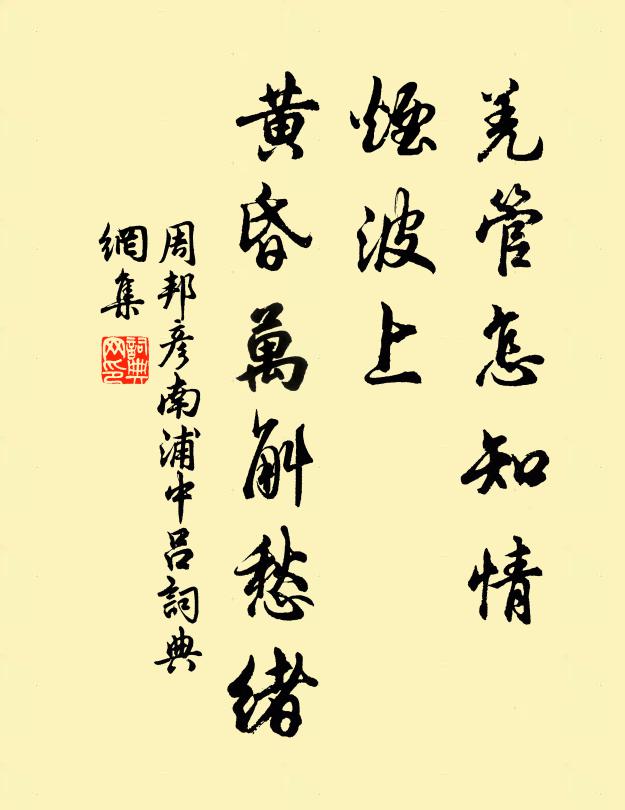 羌管怎知情
煙波上
黃昏萬斛愁緒
周邦彥南浦中呂詞典
網集
詞典網印